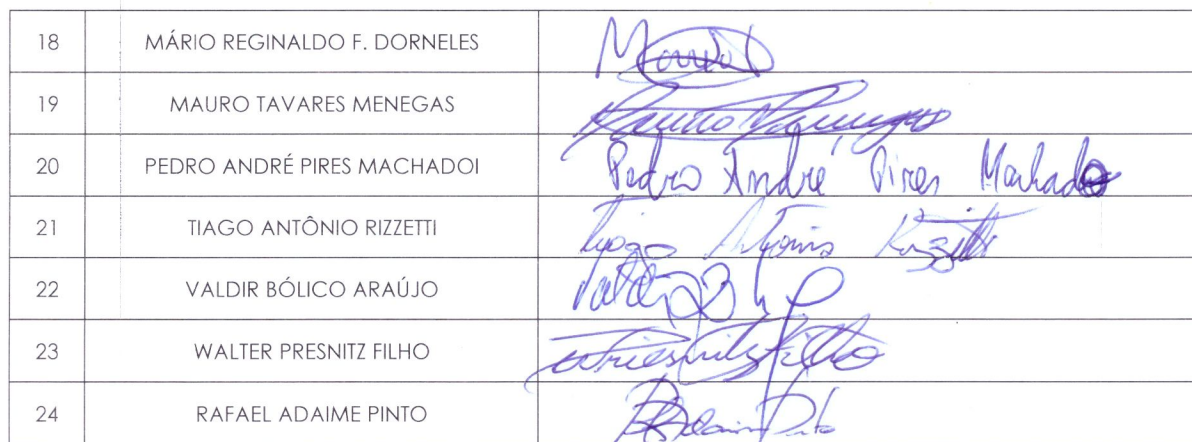 18 MÁRIO REGINALDO F. DORNELES
19 MAURO TAVARES MENEGAS
20 PEDRO ANDRÉ PIRES MACHADOI Pedro André Pires Machado
21 TIAGO ANTÔNIO RIZZETTI Tiago Antônio Rizzetti
22 VALDIR BÓLICO ARAÚJO
23 WALTER PRESNITZ FILHO
24 RAFAEL ADAIME PINTO